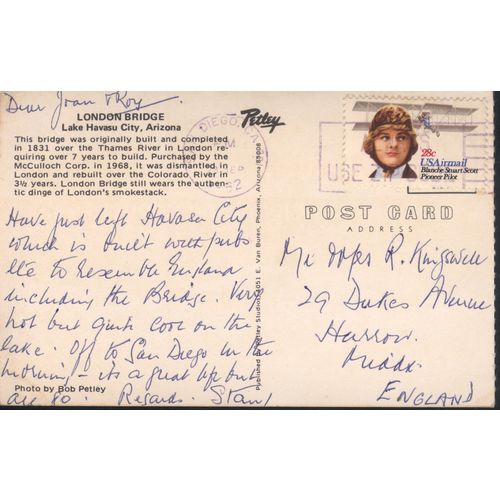 Dear Joan & Roy
LONDON BRIDGE
Lake Havasu City, Arizona
This bridge was originally built and completed
in 1831 over the Thames River in London re-
quiring over 7 years to build. Purchased by the
McCulloch Corp. in 1968, it was dismantled in
London and rebuilt over the Colorado River in
3½ years. London Bridge still wears the authen-
tic dinge of London's smokestack.
Have just left Havasu City
which is built with pubs
etc to resemble England
including the Bridge. Very
hot but quite cool on the
lake. Off to San Diego in the
morning - its a great trip but
are 80. Regards. Stan
Photo by Bob Petley
Petley
Published by Petley Studios, 4051 E. Van Buren, Phoenix, Arizona 85008
DIEGO, CA
PM
SEP
USE
28c
USAirmail
Blanche Stuart Scott
Pioneer Pilot
POST CARD
ADDRESS
Mr R. Kingswell
29 Dukes Avenue
Harrow.
Middx.
ENGLAND